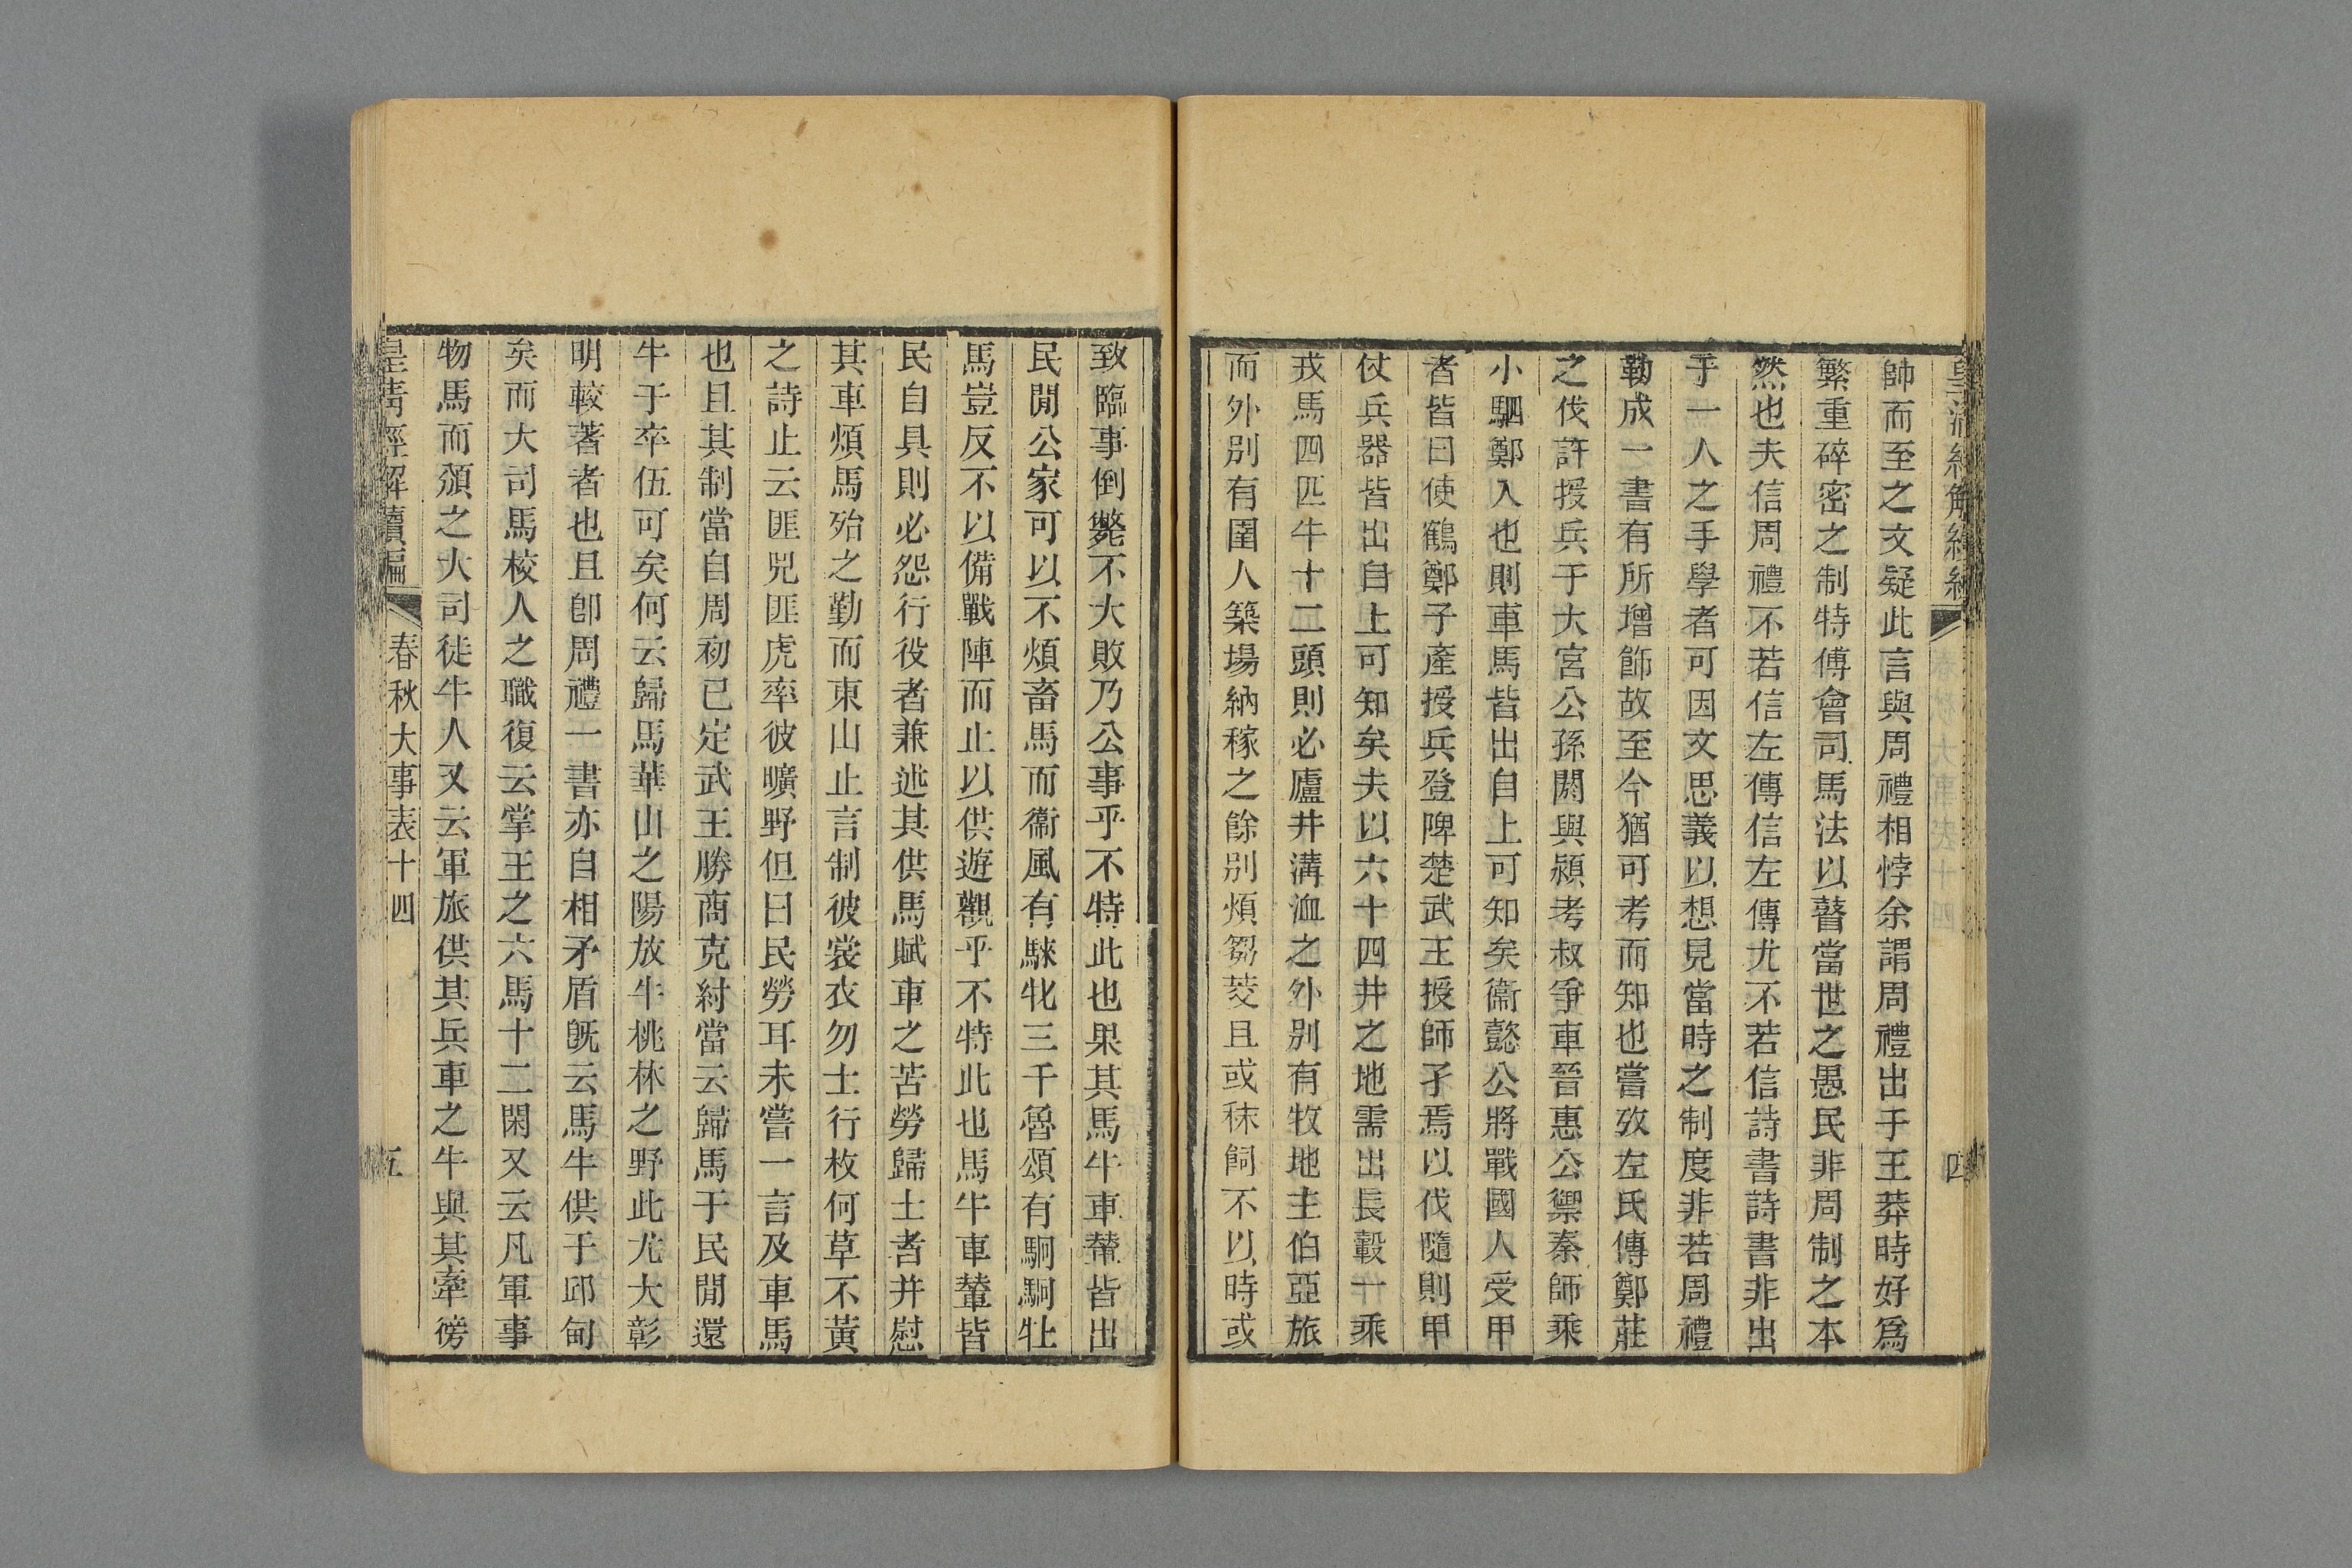 帥而至之文疑此言與周禮相悖余謂周禮出于王莽時好爲
繁重碎密之制特傅會司馬法以瞽當世之愚民非周制之本
然也夫信周禮不若信左傳信左傳尤不若信詩書詩書非出
于一人之手學者可因文思義以想見當時之制度非若周禮
勒成一書有所增飾故至今猶可考而知也嘗攷左氏傳鄭莊
之伐許授兵于大宮公孫閼與潁考叔爭車晉惠公禦秦師乘
小駟鄭入也則車馬皆出自上可知矣衞懿公將戰國人受甲
者皆曰使鶴鄭子產授兵登陴楚武王授師孑焉以伐隨則甲
仗兵器皆出自上可知矣夫以六十四井之地需出長轂一乘
戎馬四匹牛十二頭則必廬井溝洫之外別有牧地主伯亞旅
而外別有圉人築場納稼之餘別煩芻茭且或秣飼不以時或
致臨事倒斃不大敗乃公事乎不特此也果其馬牛車輦皆出
民閒公家可以不煩畜馬而衞風有騋牝三千魯頌有駉駉牡
馬豈反不以備戰陣而止以供遊觀乎不特此也馬牛車輦皆
民自具則必怨行役者兼述其供馬賦車之苦勞歸士者并慰
其車煩馬殆之勤而東山止言制彼裳衣勿士行枚何草不黃
之詩止云匪兕匪虎率彼曠野但曰民勞耳未嘗一言及車馬
也且其制當自周初已定武王勝商克紂當云歸馬于民閒還
牛于卒伍可矣何云歸馬華山之陽放牛桃林之野此尤大彰
明較著者也且卽周禮一書亦自相矛盾旣云馬牛供于邱甸
矣而大司馬校人之職復云掌王之六馬十二閑又云凡軍事
物馬而頒之大司徒牛人又云軍旅供其兵車之牛與其牽徬
皇淸經解續編
春秋大事表十四
五